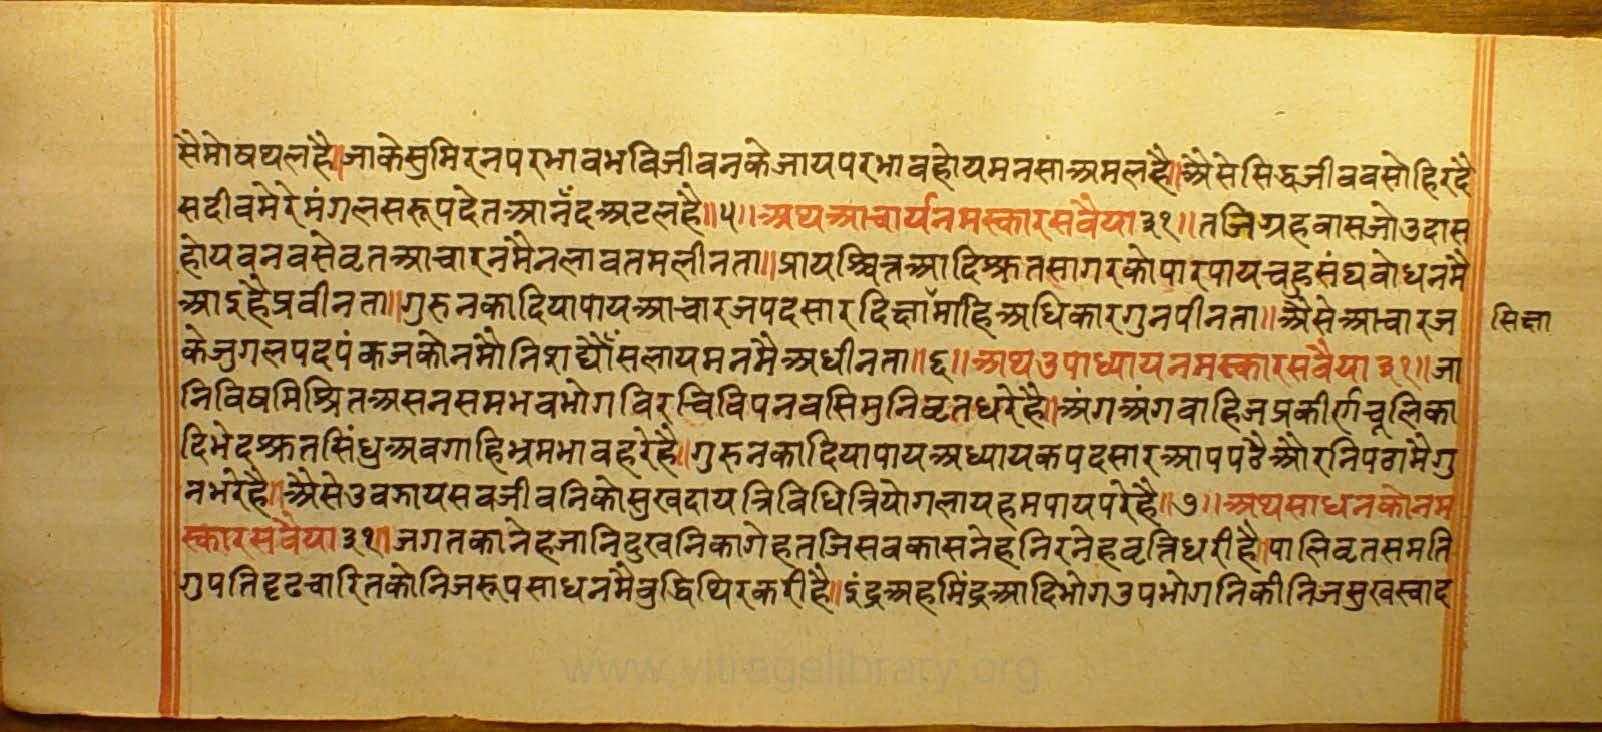 सैमोषथलहै॥जाकेसुमिरनपरभावभविजीवनकेजायपरभावहोयमनसाअमलहै॥अैसेसिद्धजीववसोहिरदै
सदीवमेरेमंगलसरूपदेतआनँदअटलहै॥५॥अथआचार्यनमस्कारसवैया३१॥तजिग्रहवासजोउदास
होयवनवसेवृतआचारनमैनलावतमलीनता॥प्रायश्चित्तआदिश्रुतसागरकोपारपायचहुसंघबोधनमै
आइहैप्रवीनता॥गुरुनकादियापायआचारजपदसारदिक्षामाहिअधिकारगुनपीनता॥अैसेआचारज
सिक्षा
केजुगलपदपंकजकोनमोनिशद्यौंसलायमनमैअधीनता॥६॥अथउपाध्यायनमस्कारसवैया३१॥जा
निविषमिश्रितअसनसमभवभोगविरचिविपनवसिमुनिवृतधरेहै॥अंगअंगवाहिजप्रकीर्णचूलिका
दिभेदश्रुतसिंधुअवगाहिभ्रमभावहरेहै॥गुरुनकादियापायअध्यायकपदसारआपपठैऔरनिपठामैगु
नभरेहै॥अैसेउवझायसवजीवनिकोसुखदायत्रिविधित्रियोगलायहमपायपरेहै॥७॥अथसाधनकोनम
स्कारसवैया३१॥जगतकानेहजानिदुखनिकागेहतजिसवकासनेहनिरनेहवृत्तिधरीहै॥पालिवृतसमति
गुपतिदृढचारितकोनिजरूपसाधनमैवुद्धिथिरकरीहै॥इंद्रअहमिंद्रआदिभोगउपभोगनिकीनिजसुखस्वाद
www.vitragelibrary.org